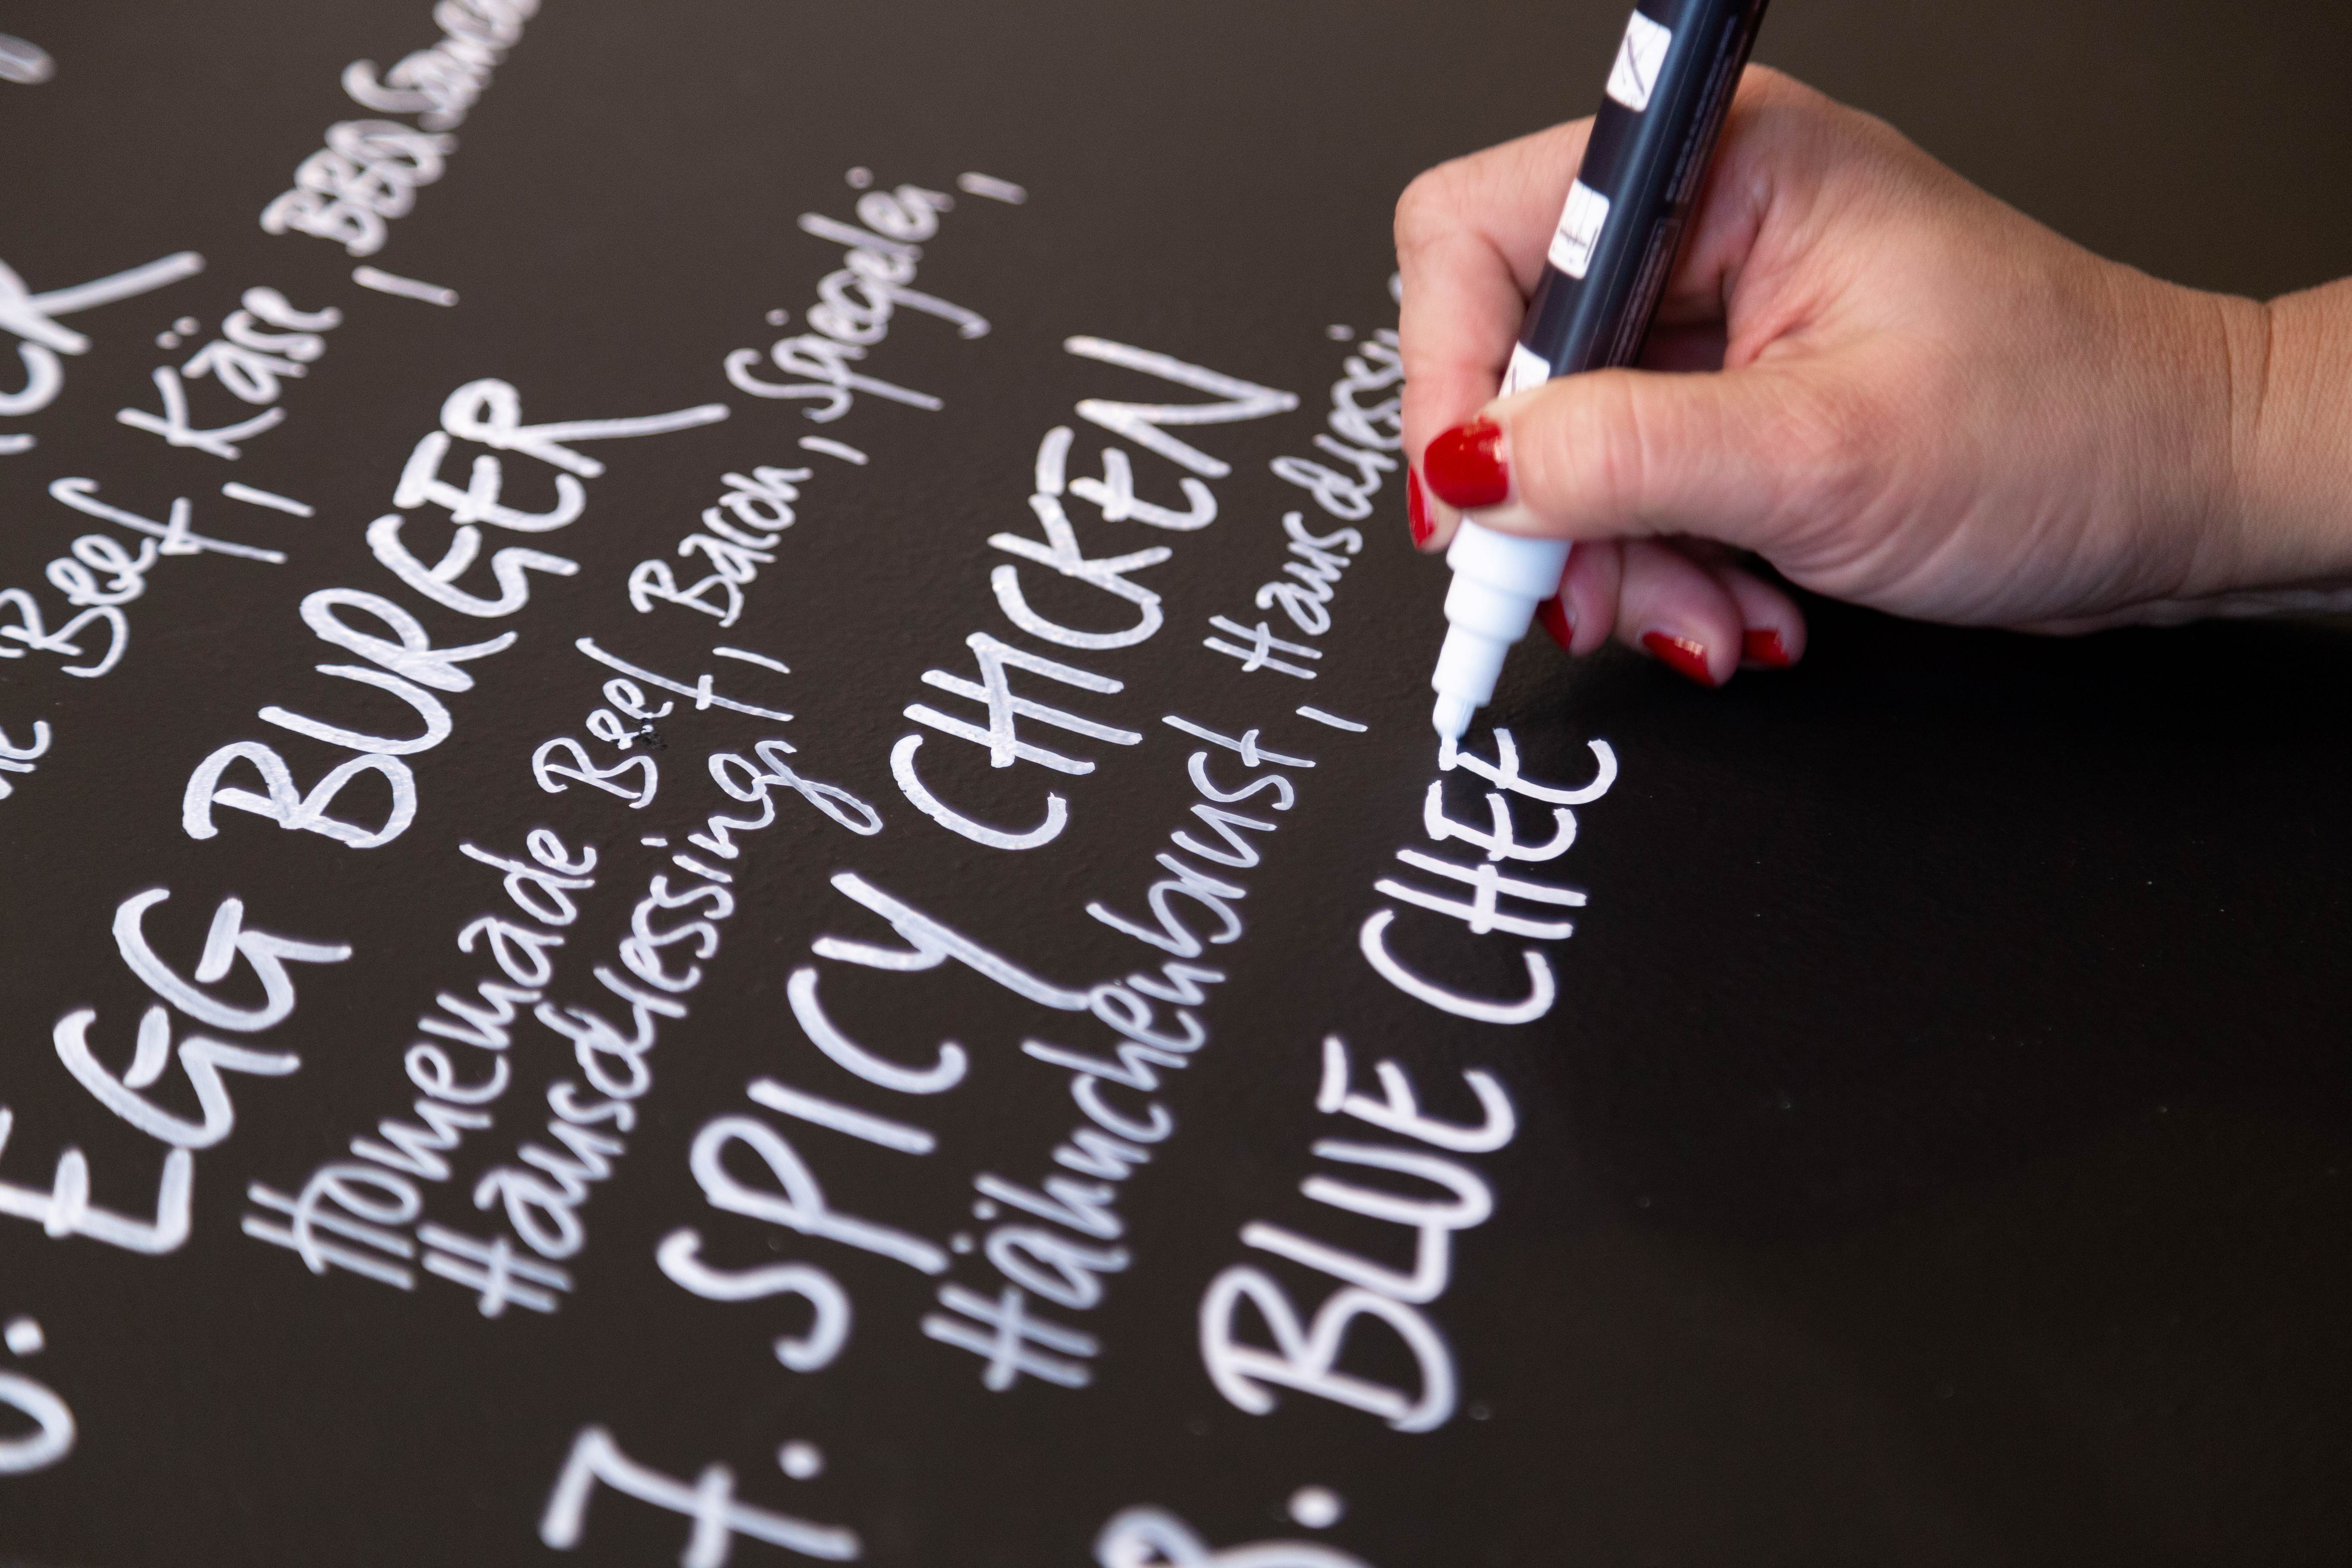 Beef, Käse, BBQ Sauce
6. EGG BURGER
Homemade Beef, Bacon, Spiegelei,
Hausdressing
7. SPICY CHICKEN
Hähnchenbrust, Hausdressi
8. BLUE CHEE